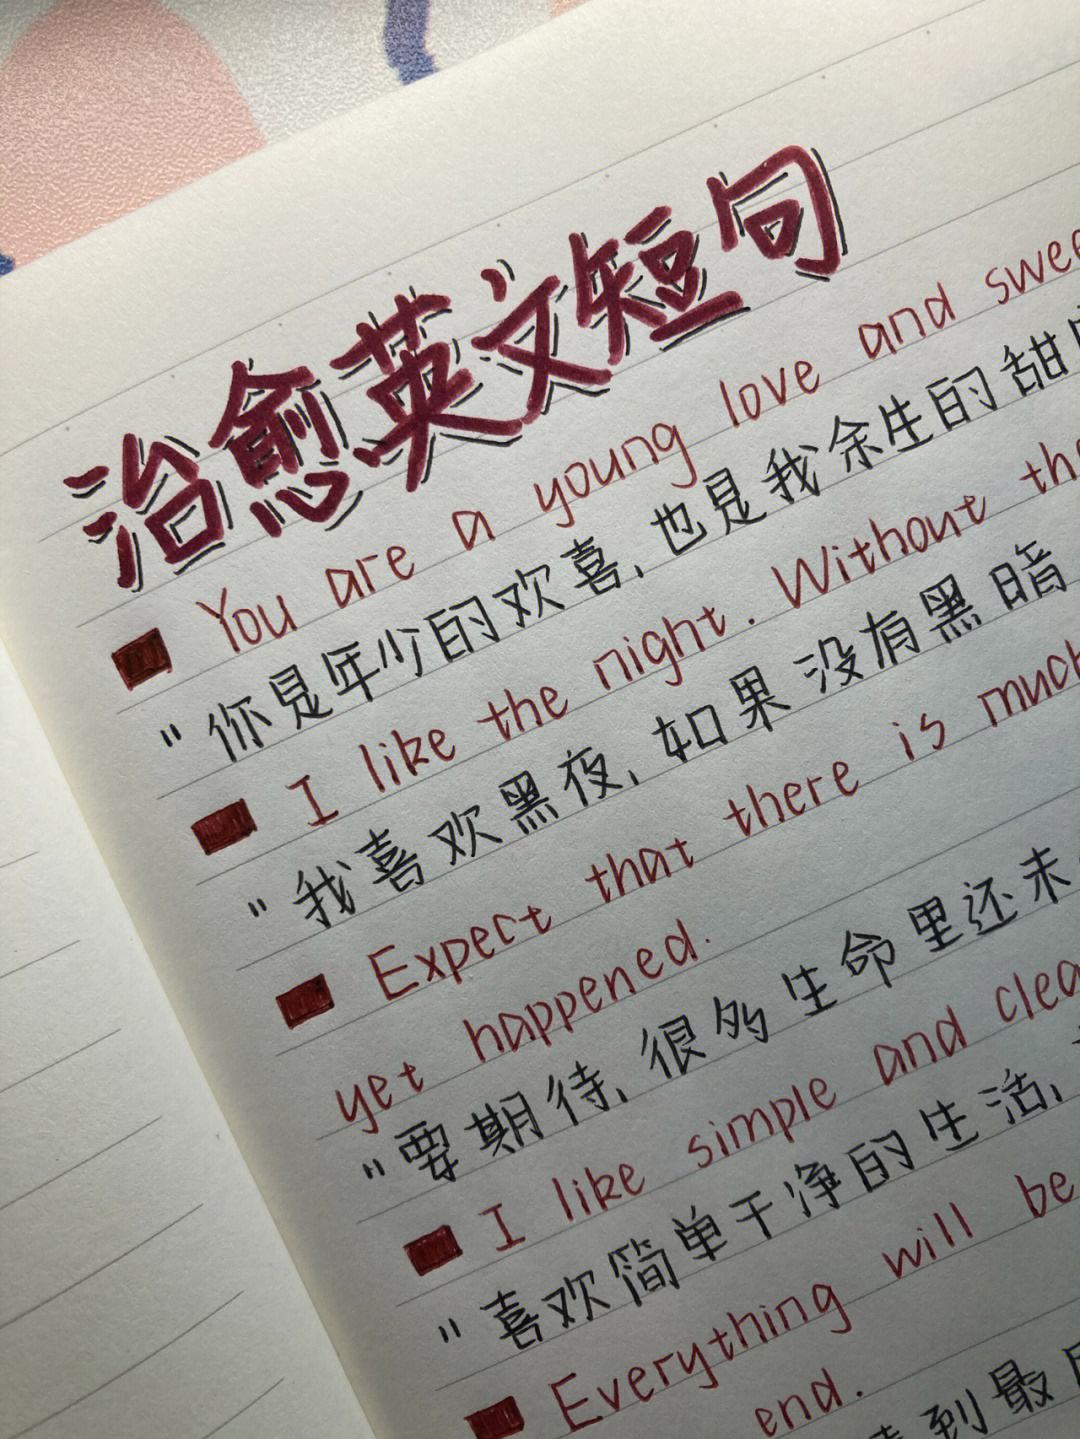 治愈英文短句
You are a young love and
"你是年少的欢喜,也是我余生的甜
I like the night. Without
"我喜欢黑夜,如果没有黑暗
Expect that there is much
yet happened.
"要期待,很多生命里还未
I like simple and
"喜欢简单干净的生活,
Everything will be
end.
到最